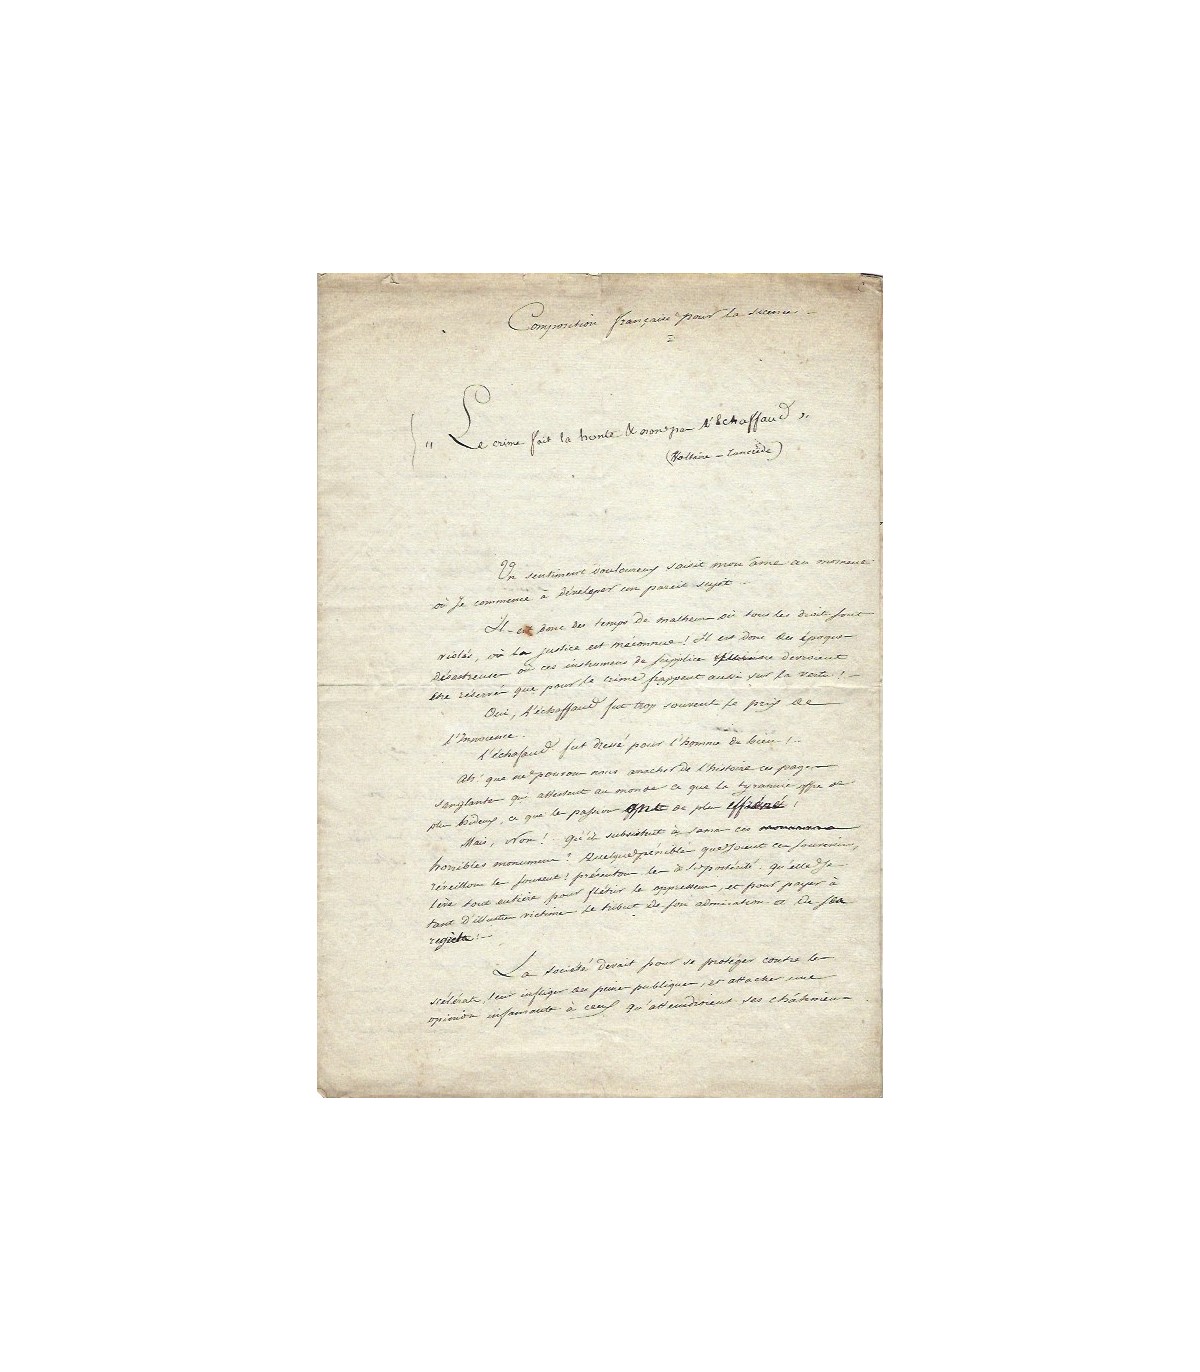 Composition française pour la licence -
"Le crime fait la honte & non pas l'Echaffaud"
(Voltaire - Tancrède)
Un sentiment douloureux saisit mon âme au moment
où je commence à développer un pareil sujet..
Il est donc des temps de malheur où tous les droits sont
violés, où la justice est méconnue! Il est donc des époques
désastreuses où ces instrumens de supplice devroient
être réservés que pour le crime frappent aussi sur la vertu! -
Oui, l'échaffaud fut trop souvent le prix de
l'Innocence..
L'échafaud fut dressé pour l'homme de bien!..
Ah! que ne pouvons nous arracher de l'histoire ces pages
sanglantes qui attestent au monde ce que la tyrannie offre de
plus hideux, ce que les passions ont de plus effréné!
Mais, Non! Qu'ils subsistent à jamais ces
horribles monumens! Quelque pénibles que soient ces souvenirs,
réveillons les souvent! présentons les à la postérité. qu'elle se
lève tout entière pour flétrir les oppresseurs, et pour payer à
tant d'illustres victimes le tribut de son admiration et de ses
regrets! -
La société devait pour se protéger contre les
scélérats, leur infliger des peines publiques, et attacher une
opinion infamante à ceux qu'atteindroient ses châtimens.